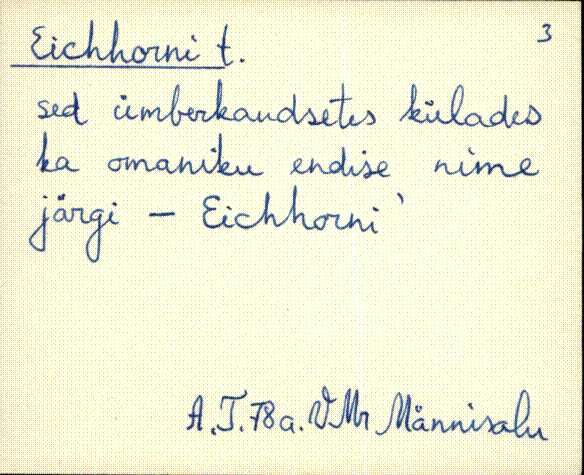 Eichhorni t. 3
sed ümberkaudsetes külades
ka omaniku endise nime
järgi - Eichhorni'
A.T. 78a. VMr Männisalu